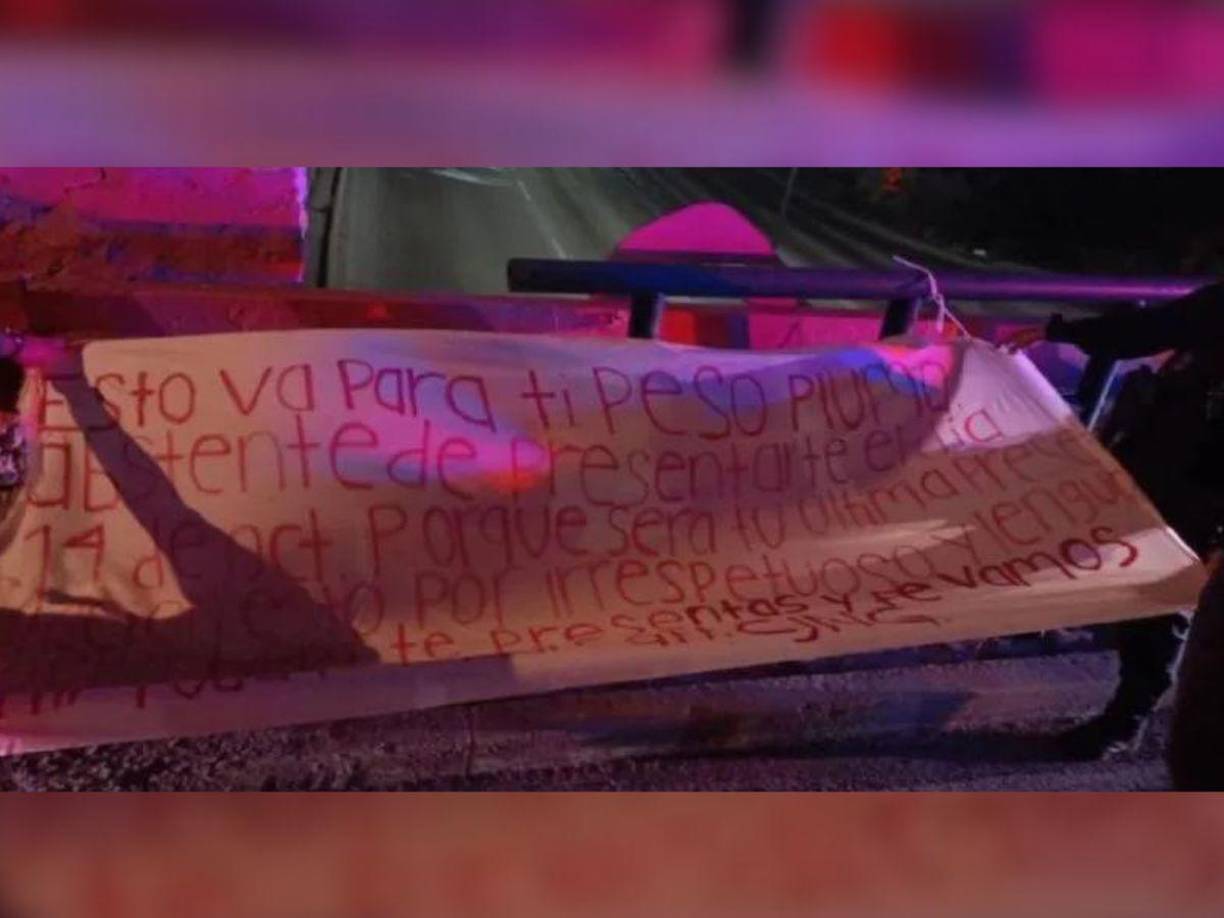 Esto va Para ti Peso Pluma
abstente de Presentarte el dia
14 de oct Porque sera tu ultima Prese
por irrespetuoso y lengu
te presentas y te vamos